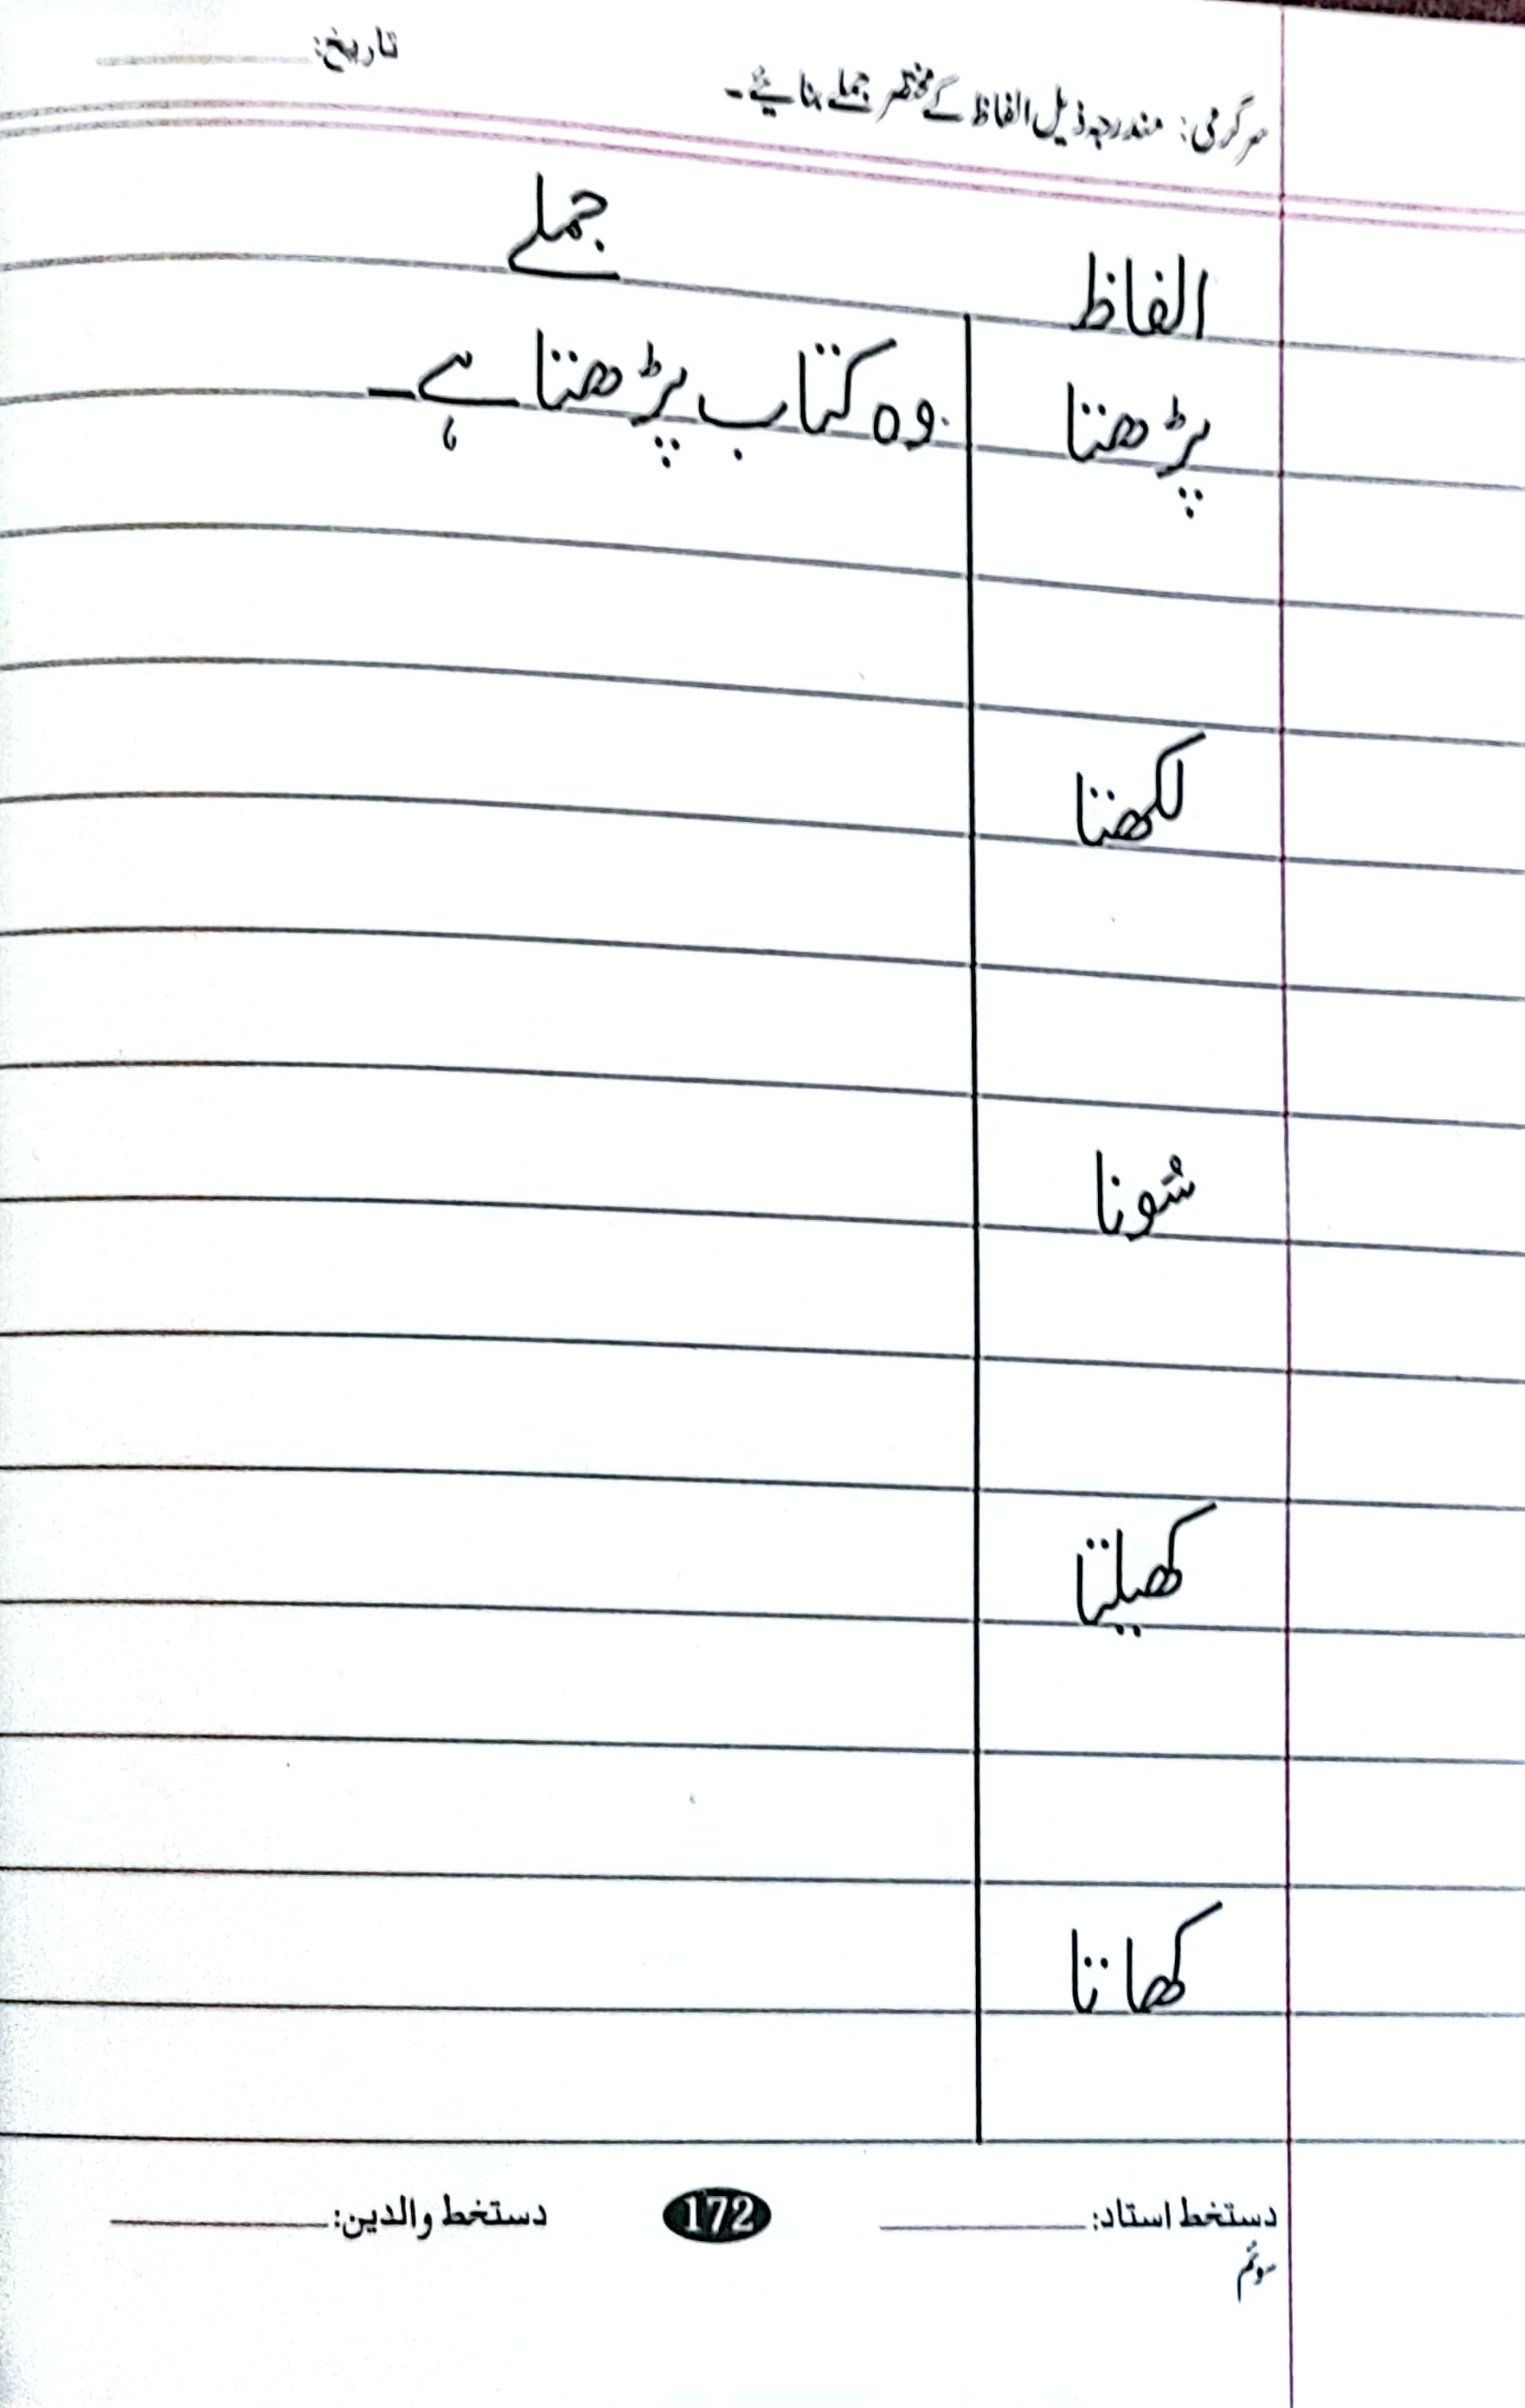 تاریخ:
سرگرمی: مندرجہ ذیل الفاظ کے مختصر جملے بنائیے۔
الفاظ جملے
پڑھتا وہ کتاب پڑھتا ہے۔
لکھتا
سُونا
کھیلتا
کھاتا
دستخط استاد: 172 دستخط والدین:
سوئم